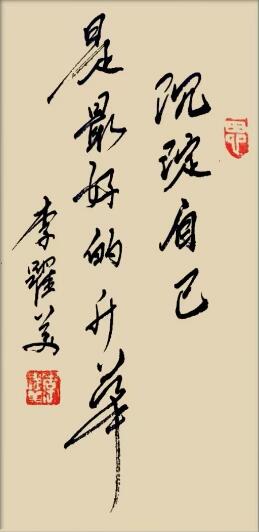 沉淀自己
是最好的升华
李翟美